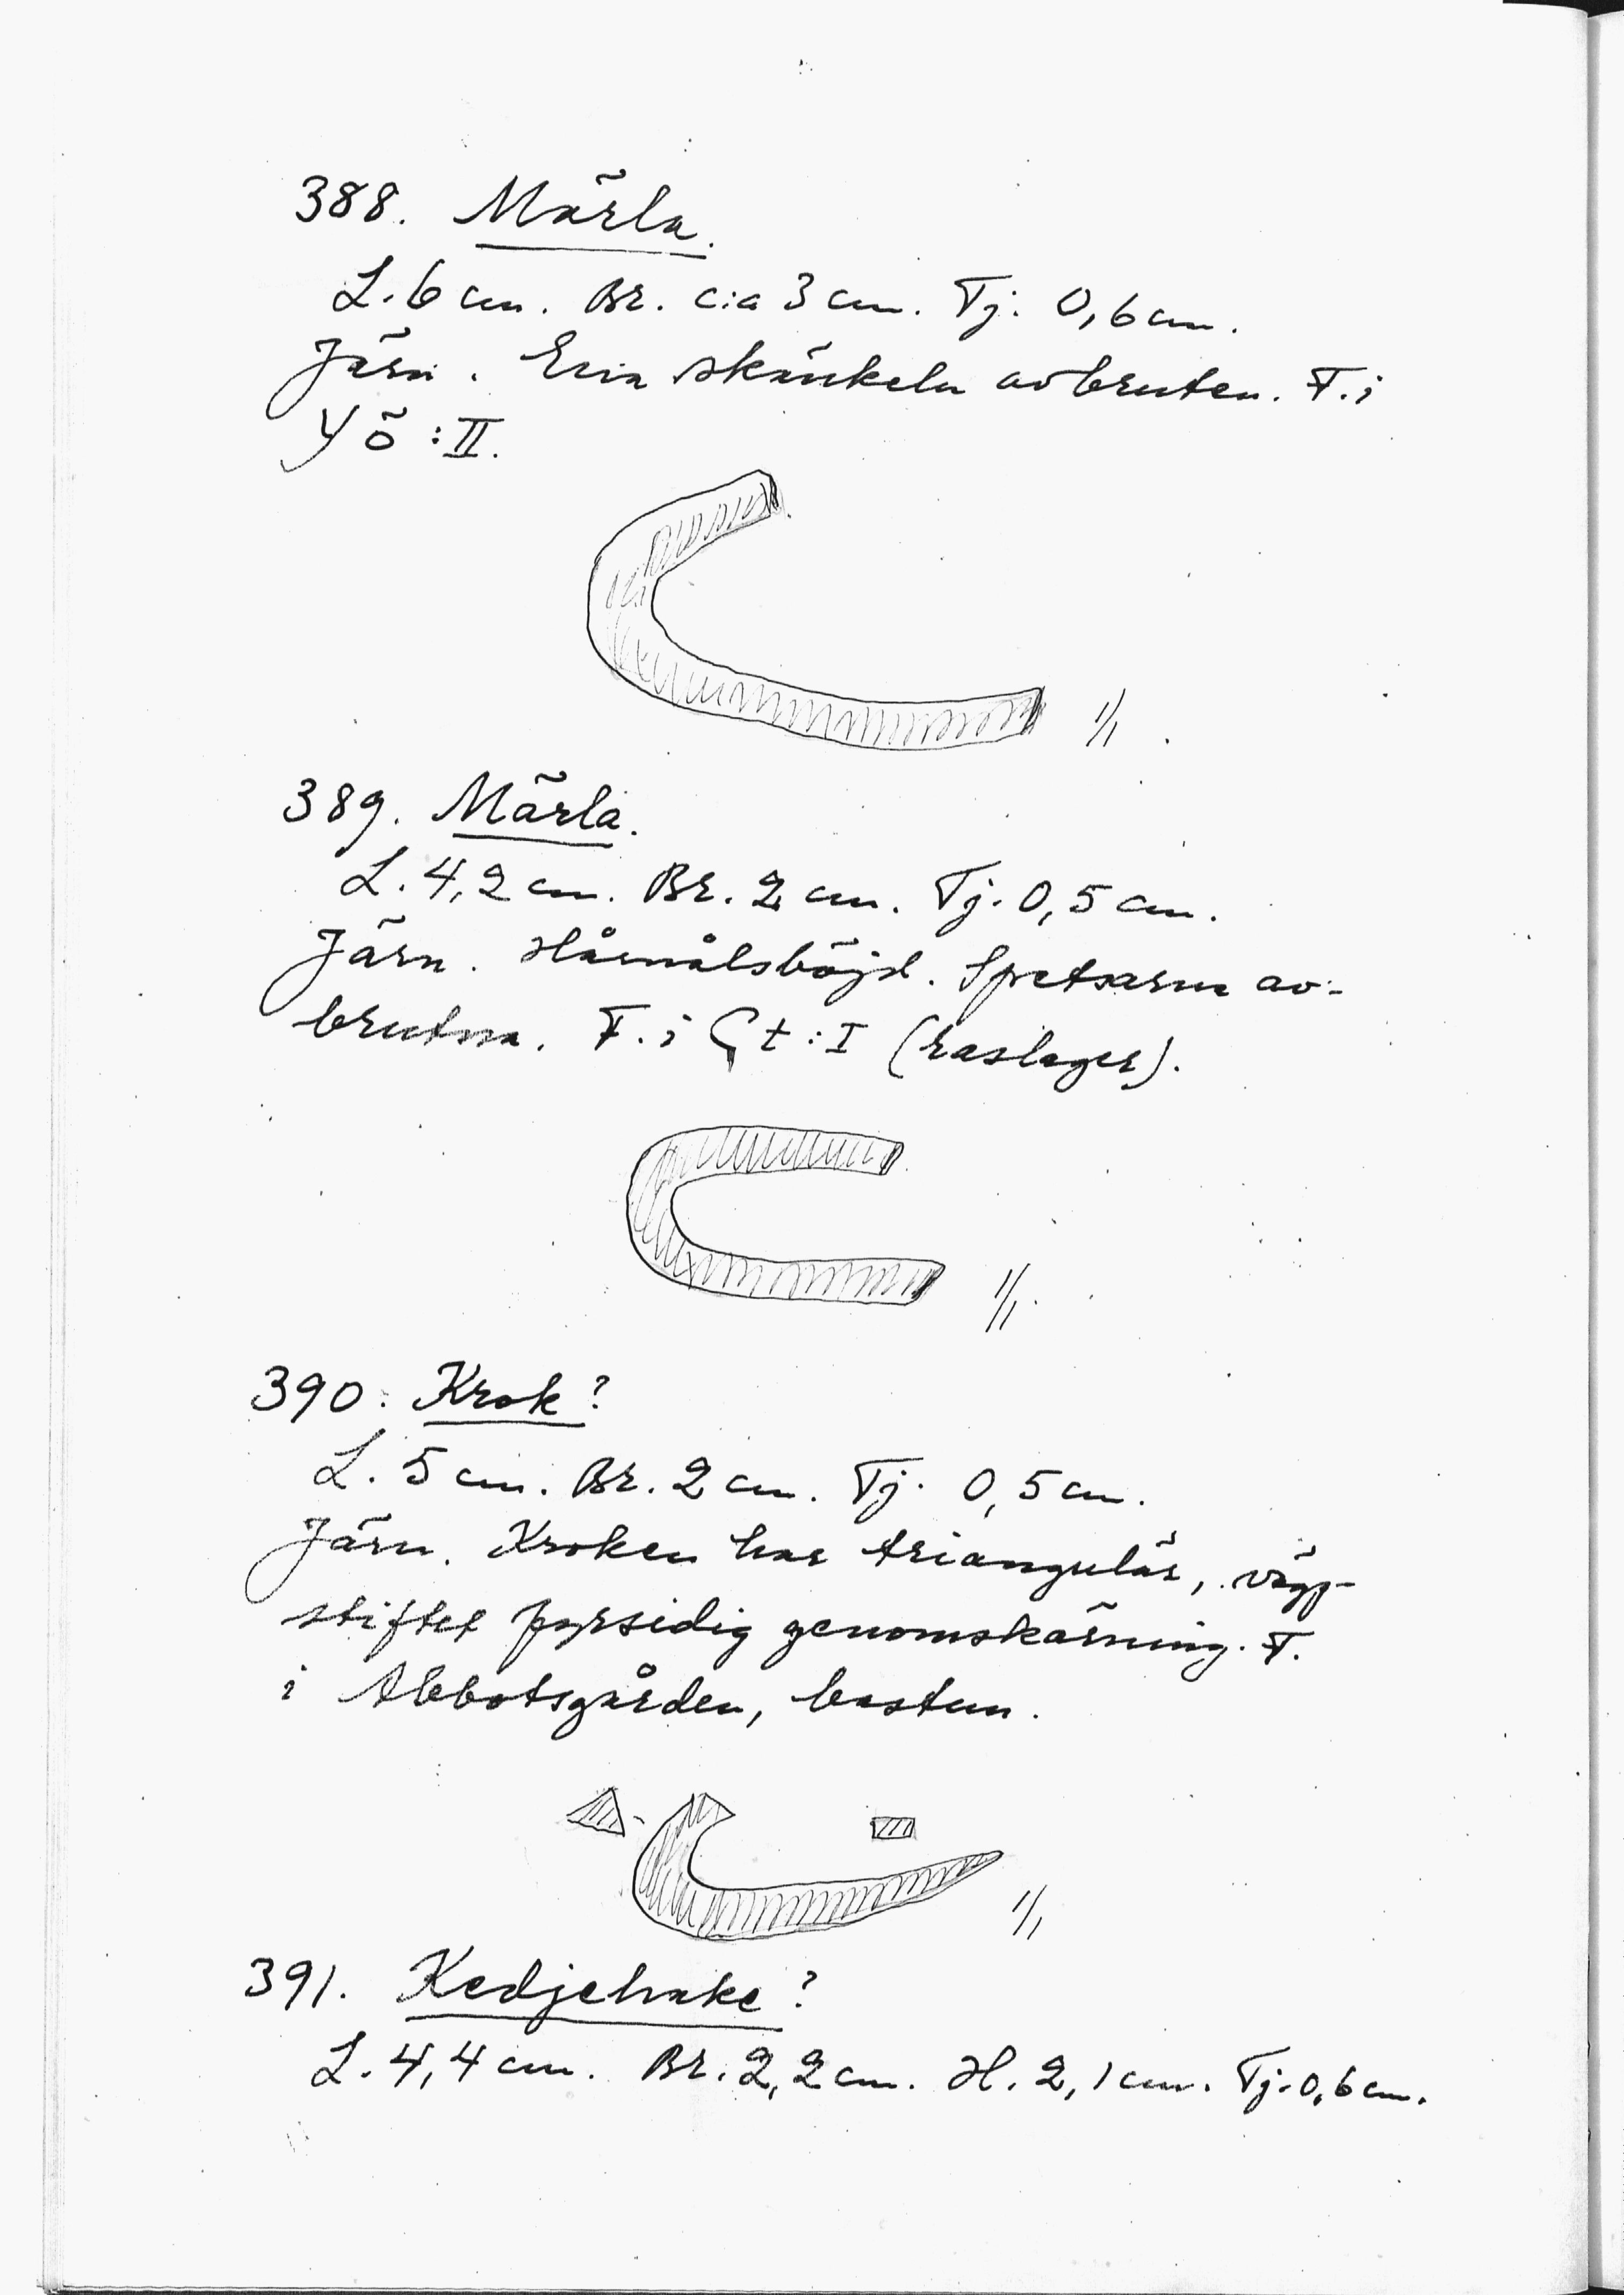 388. Märla.
L. 6 cm. Br. c:a 3 cm. Tj. 0,6 cm.
Järn. Ena skänkeln avbruten. F. i
YÖ : II.
1/1
389. Märla.
L. 4,2 cm. Br. 2 cm. Tj. 0,5 cm.
Järn. Hårnålsböjd. Spetsarna av-
brutna. F. i Gt : I (raslager).
1/1.
390. Krok?
L. 5 cm. Br. 2 cm. Tj. 0,5 cm.
Järn. Kroken har triangulär, vägg-
stiftet fyrsidig genomskärning. F.
i Abbotsgården, bastun.
1/1
391. Kedjehake?
L. 4,4 cm. Br. 2,2 cm. H. 2,1 cm. Tj. 0,6 cm.